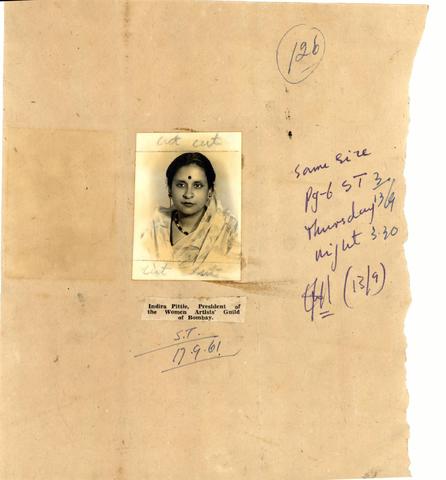 126
cut cut
Same Size
Pg-6 ST 3
Thursday 13/9
night 3.30
(13/9)
cut cut
Indira Pittie, President of
the Women Artists' Guild
of Bombay.
S.T.
17.9.61